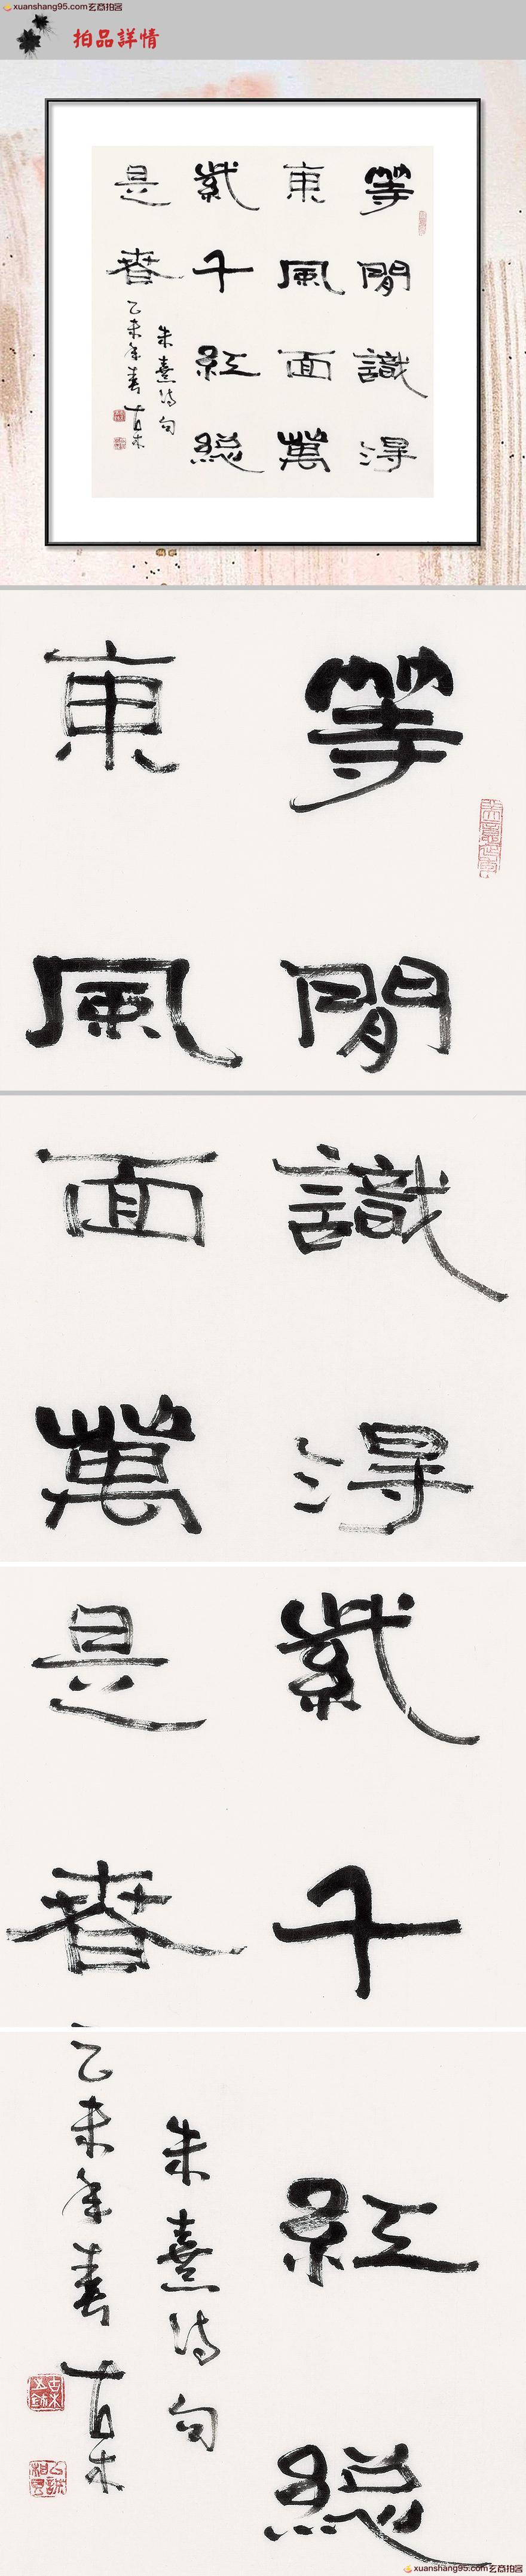 xuanshang95.com玄商拍客
拍品詳情
等閒識得
東風面萬
紫千紅總
是春
朱熹詩句
乙未年春古木
東
等
風
閒
面
識
萬
得
是
紫
春
千
乙未年春古木
朱熹詩句
紅
總
xuanshang95.com玄商拍客